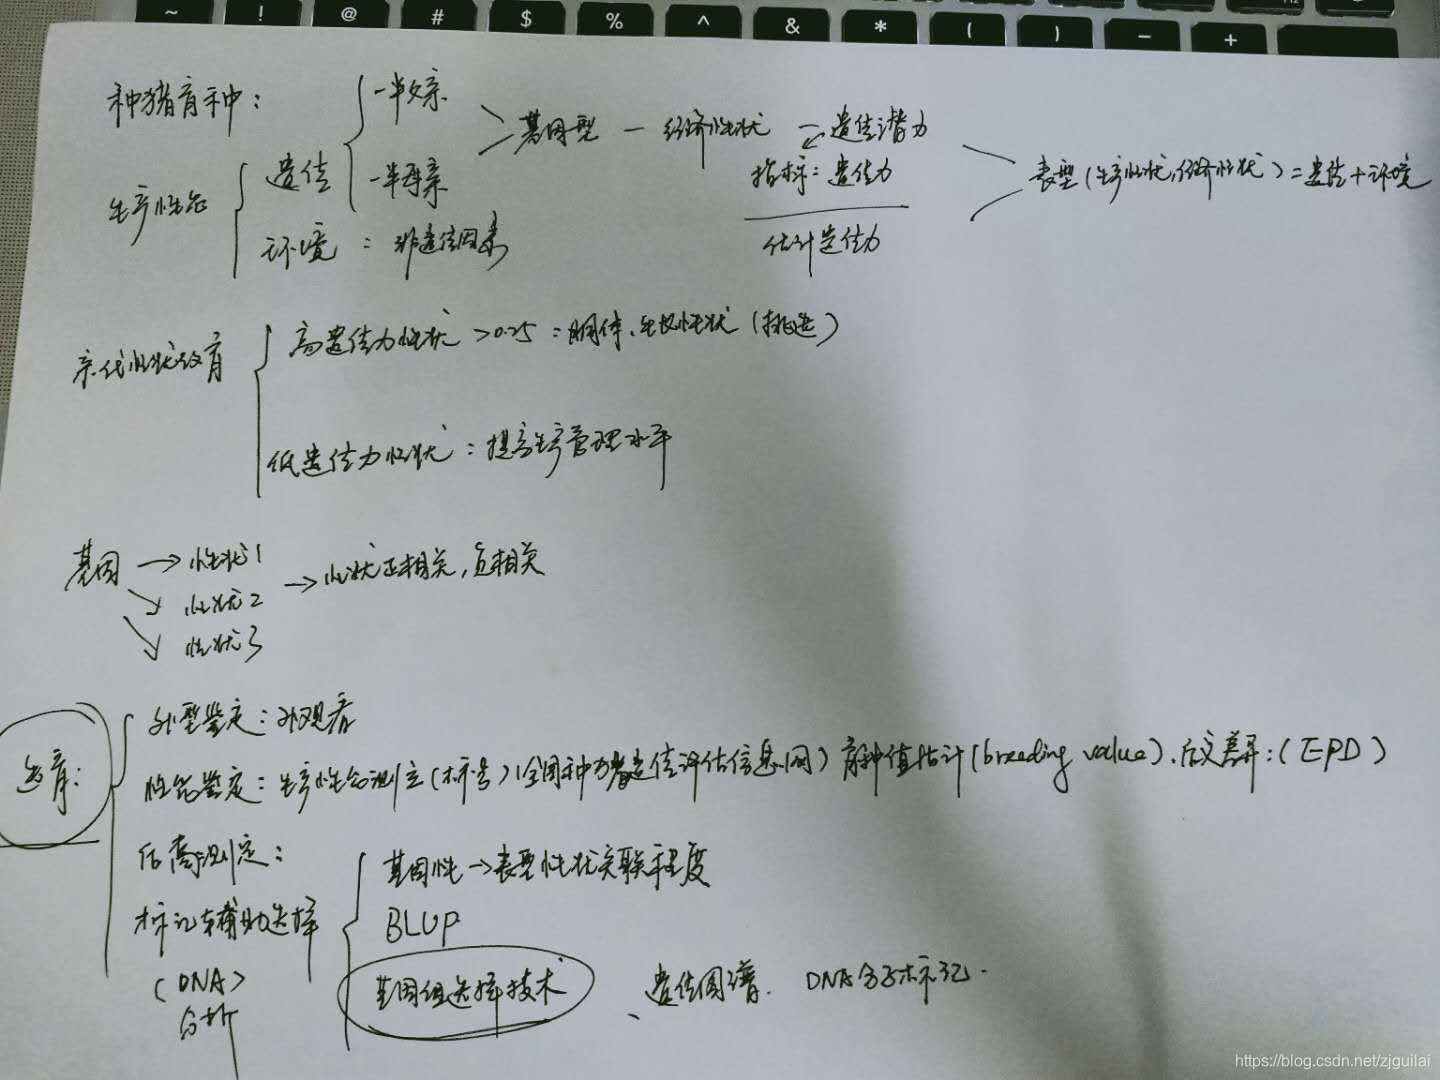 ~ ! @ # $ % ^ & * ( ) − +
种猪育种：
一半父亲
遗传
一半母亲
基因型 — 经济性状 — 遗传潜力
指标：遗传力
估计遗传力
表型（生产性状，经济性状）= 遗传 + 环境
生产性能
环境：非遗传因素
高遗传力性状 >0.25：胴体、生长性状（挑选）
亲代性状
低遗传力性状：提高生产管理水平
基因 → 性状1
性状2 → 性状正相关，负相关
性状3
选育：
外型鉴定：外观看
性能鉴定：生产性能测定（标号）（全国种猪遗传评估信息网）育种值估计（breeding value）. 后文差异：（EPD）
测定：
基因性 → 表型性状关联程度
标记辅助选择
BLUP
（DNA）
分析
基因组选择技术
遗传图谱. DNA分子标记.
https://blog.csdn.net/zjguilai